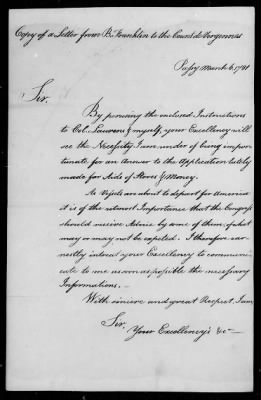 Copy of a Letter from B. Franklin to the Count de Vergennes
Passy March 6. 1781
Sir.
By perusing the enclosed Instructions
to Col. Laurens & myself, your Excellency will
see the Necessity I am under of being impor-
tunate for an Answer to the Application lately
made for Aids of Stores & Money.
As Vessels are about to depart for America
it is of the utmost Importance that the Congress
should receive Advice by some of them, of what
may or may not be expected. I therefore ear-
nestly intreat your Excellency to communi-
cate to me as soon as possible the necessary
Informations.—
With sincere and great Respect, I am,
Sir,
Your Excellency's &c—